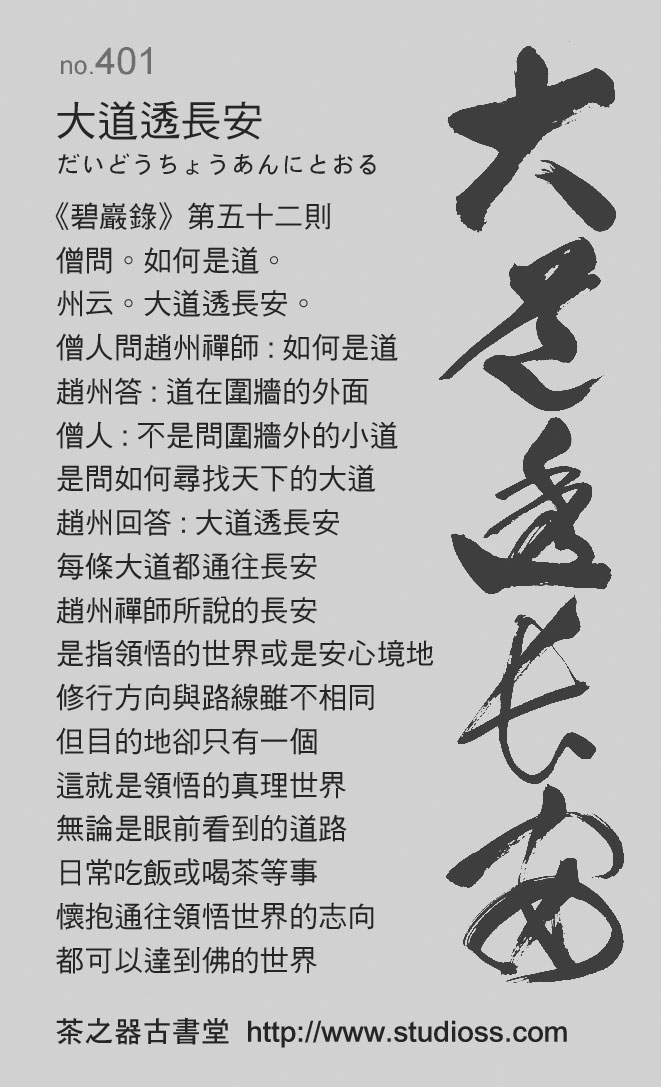 no.401
大道透長安
だいどうちょうあんにとおる
《碧巖錄》第五十二則
僧問。如何是道。
州云。大道透長安。
僧人問趙州禪師:如何是道
趙州答:道在圍牆的外面
僧人:不是問圍牆外的小道
是問如何尋找天下的大道
趙州回答:大道透長安
每條大道都通往長安
趙州禪師所說的長安
是指領悟的世界或是安心境地
修行方向與路線雖不相同
但目的地卻只有一個
這就是領悟的真理世界
無論是眼前看到的道路
日常吃飯或喝茶等事
懷抱通往領悟世界的志向
都可以達到佛的世界
茶之器古書堂 http://www.studioss.com
大道透長安